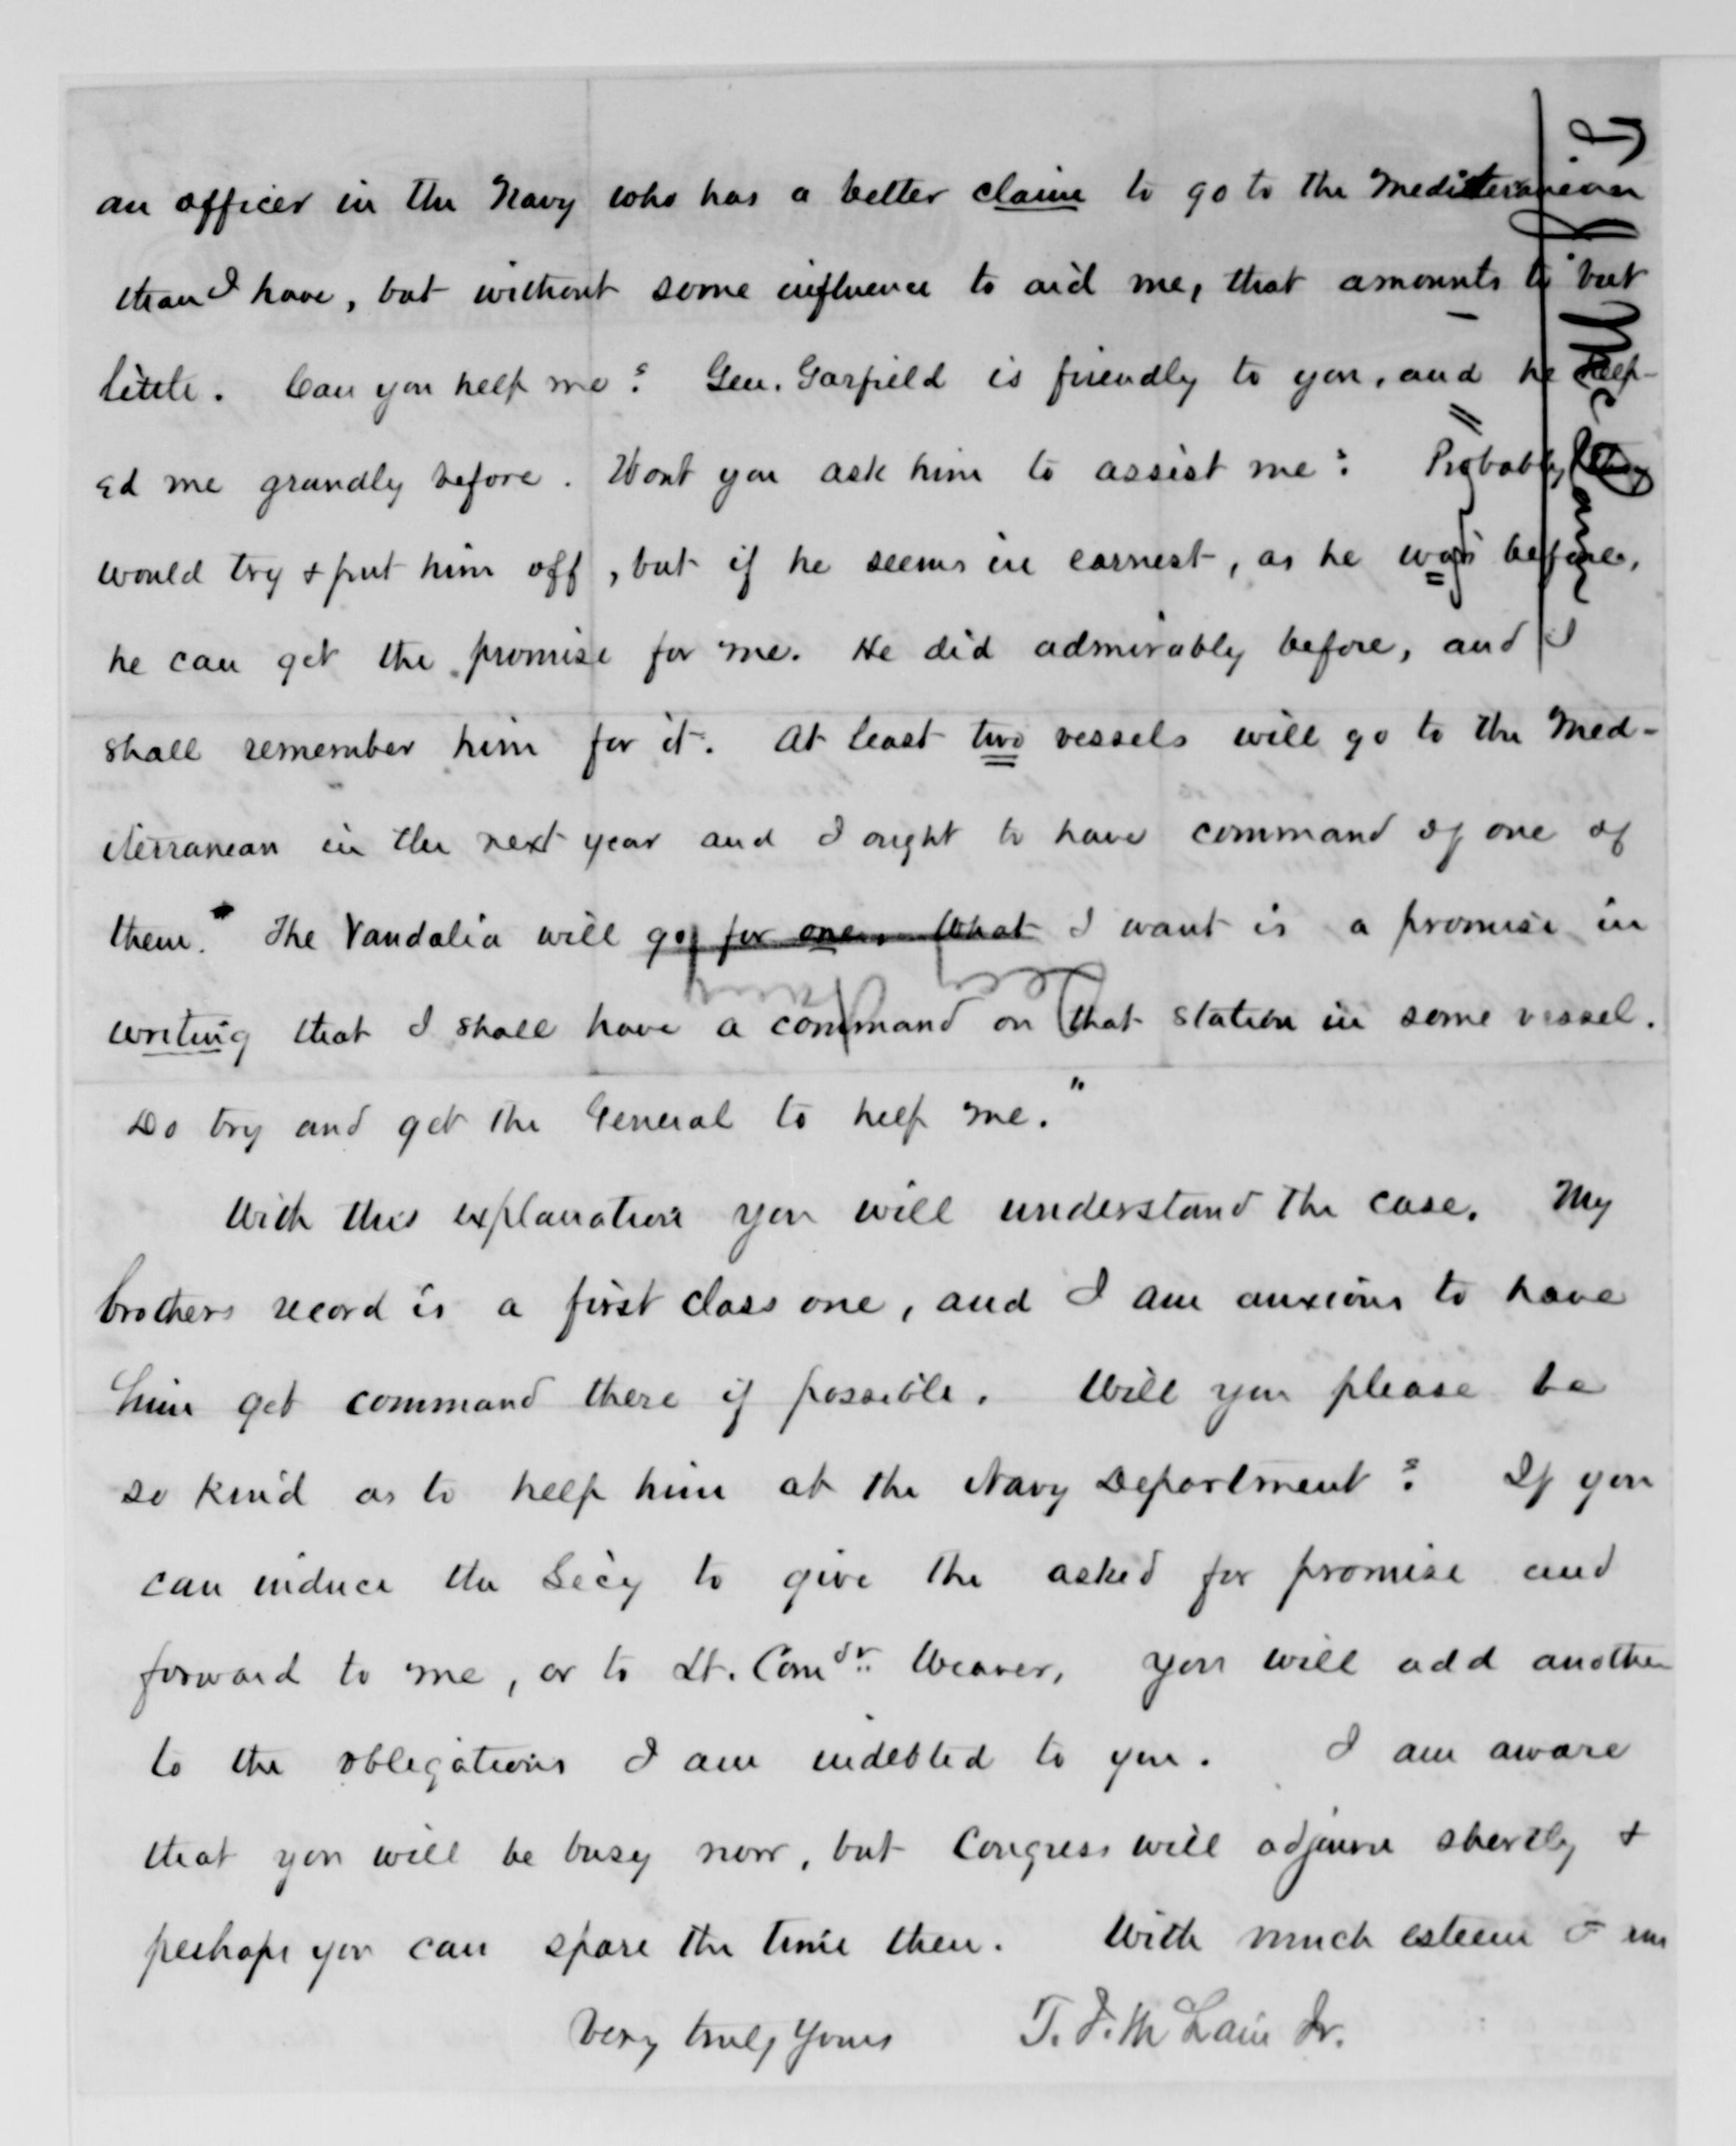 an officer in the Navy who has a better claim to go to the Mediteranean
than I have, but without some influence to aid me, that amounts to but
little. Can you help me? Gen. Garfield is friendly to you, and he help-
ed me grandly before. Wont you ask him to assist me? Probably they
would try & put him off, but if he seems in earnest, as he was before,
he can get the promise for me. He did admirably before, and I
shall remember him for it. At least two vessels will go to the Med-
iterranean in the next year and I ought to have command of one of
them. The Vandalia will go for one. What I want is a promise in
writing that I shall have a command on that station in some vessel.
Do try and get the General to help me."
With this explanation you will understand the case. My
brothers record is a first class one, and I am anxious to have
him get command there if possible. Will you please be
so kind as to help him at the Navy Department? If you
can induce the Secy to give the asked for promise and
forward to me, or to Lt. Comdr. Weaver, you will add another
to the obligations I am indebted to you. I am aware
that you will be busy now, but Congress will adjourn shortly &
perhaps you can spare the time then. With much esteem I am
Very truly Yours T. J. McLain Jr.